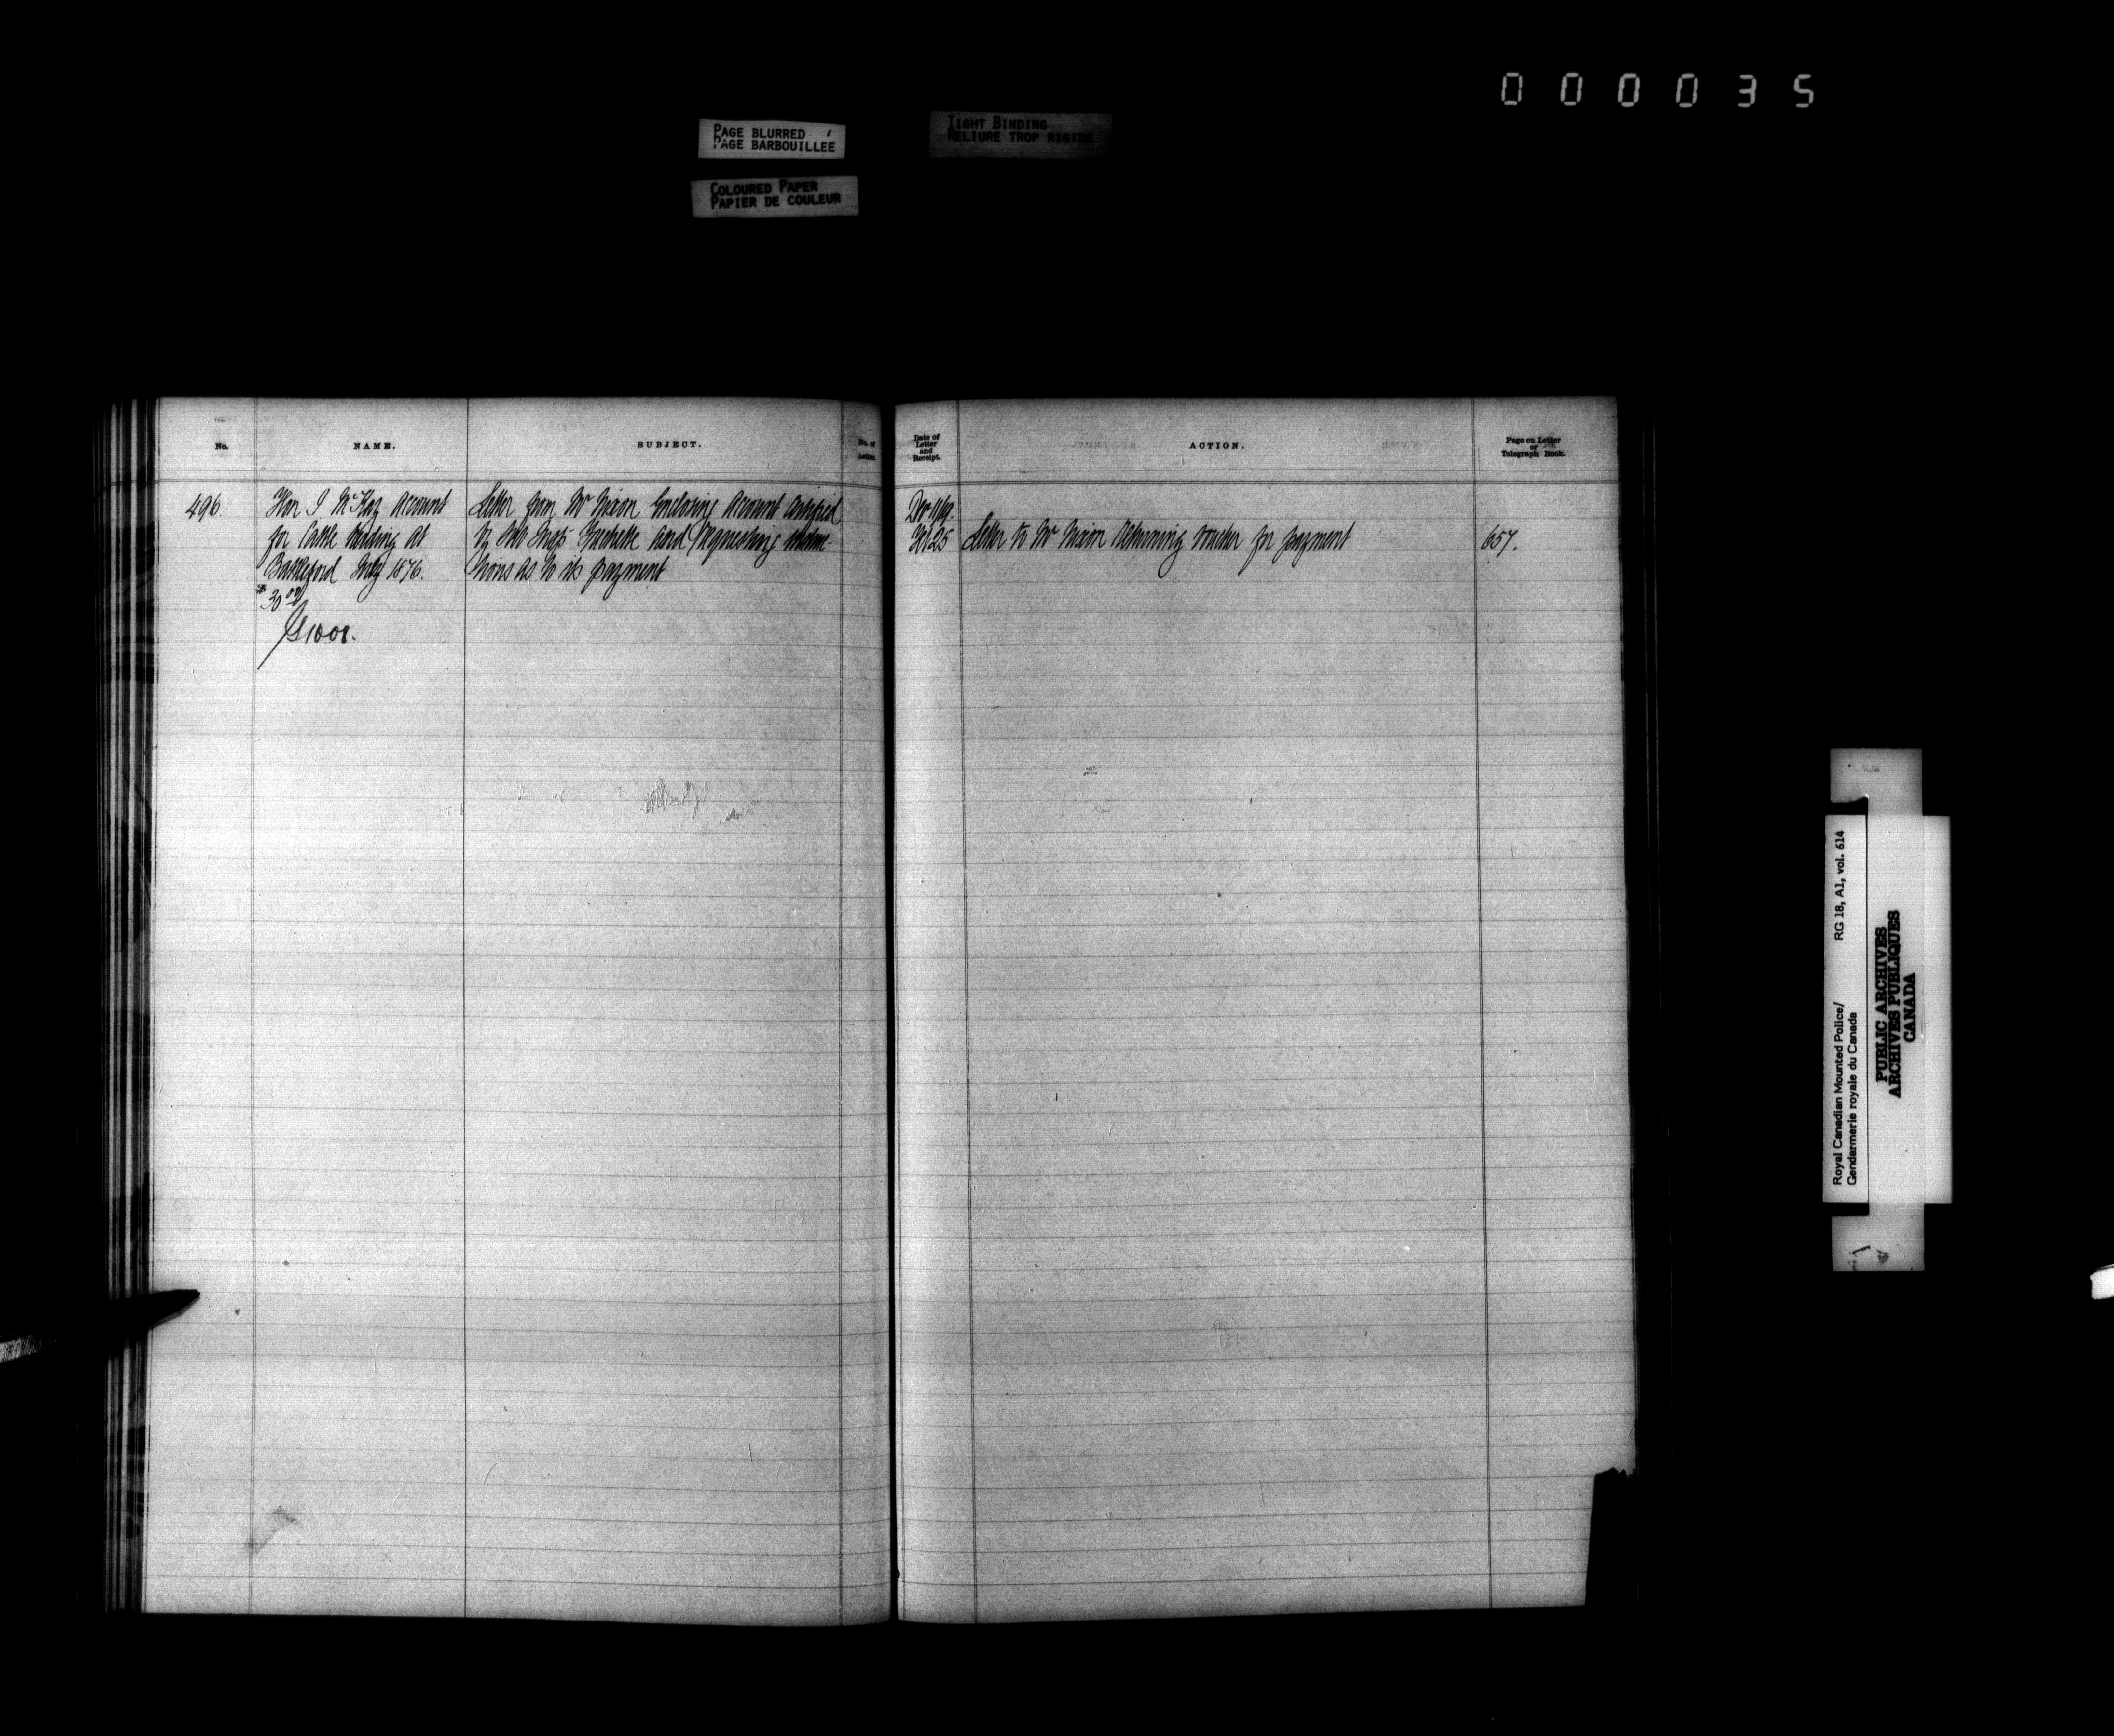 000035
PAGE BLURRED
PAGE BARBOUILLEE
TIGHT BINDING
RELIURE TROP RIGIDE
COLOURED PAPER
PAPIER DE COULEUR
No.
NAME.
SUBJECT.
No. of
Letter.
Date of
Letter
and
Receipt.
ACTION.
Page on Letter
or
Telegraph Book.
496.
Hon J. McKay Account
for Cattle herding at
Battleford July 1876.
$30 00
Letter from Mr Nixon Enclosing Account certified
by Sub Insp Frechette and requesting
tions as to its payment
Dec 11/19.
25
Letter to Mr Nixon returning voucher for payment
657.
Royal Canadian Mounted Police/
Gendarmerie royale du Canada
RG 18, A1, vol. 614
PUBLIC ARCHIVES
ARCHIVES PUBLIQUES
CANADA